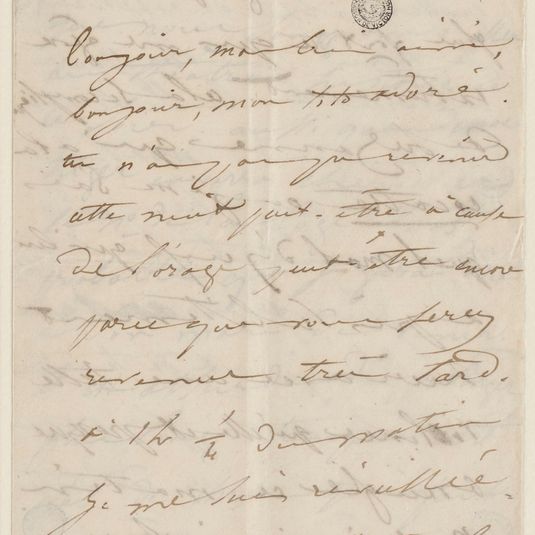 Bonjour, mon bien aimé,
bonjour, mon toto adoré.
tu n'as pas pu revenir
cette nuit peut-être à cause
de l'orage peut-être encore
parce que vous serez
revenu très tard.
à 1h ¼ du matin
Je me suis réveillée